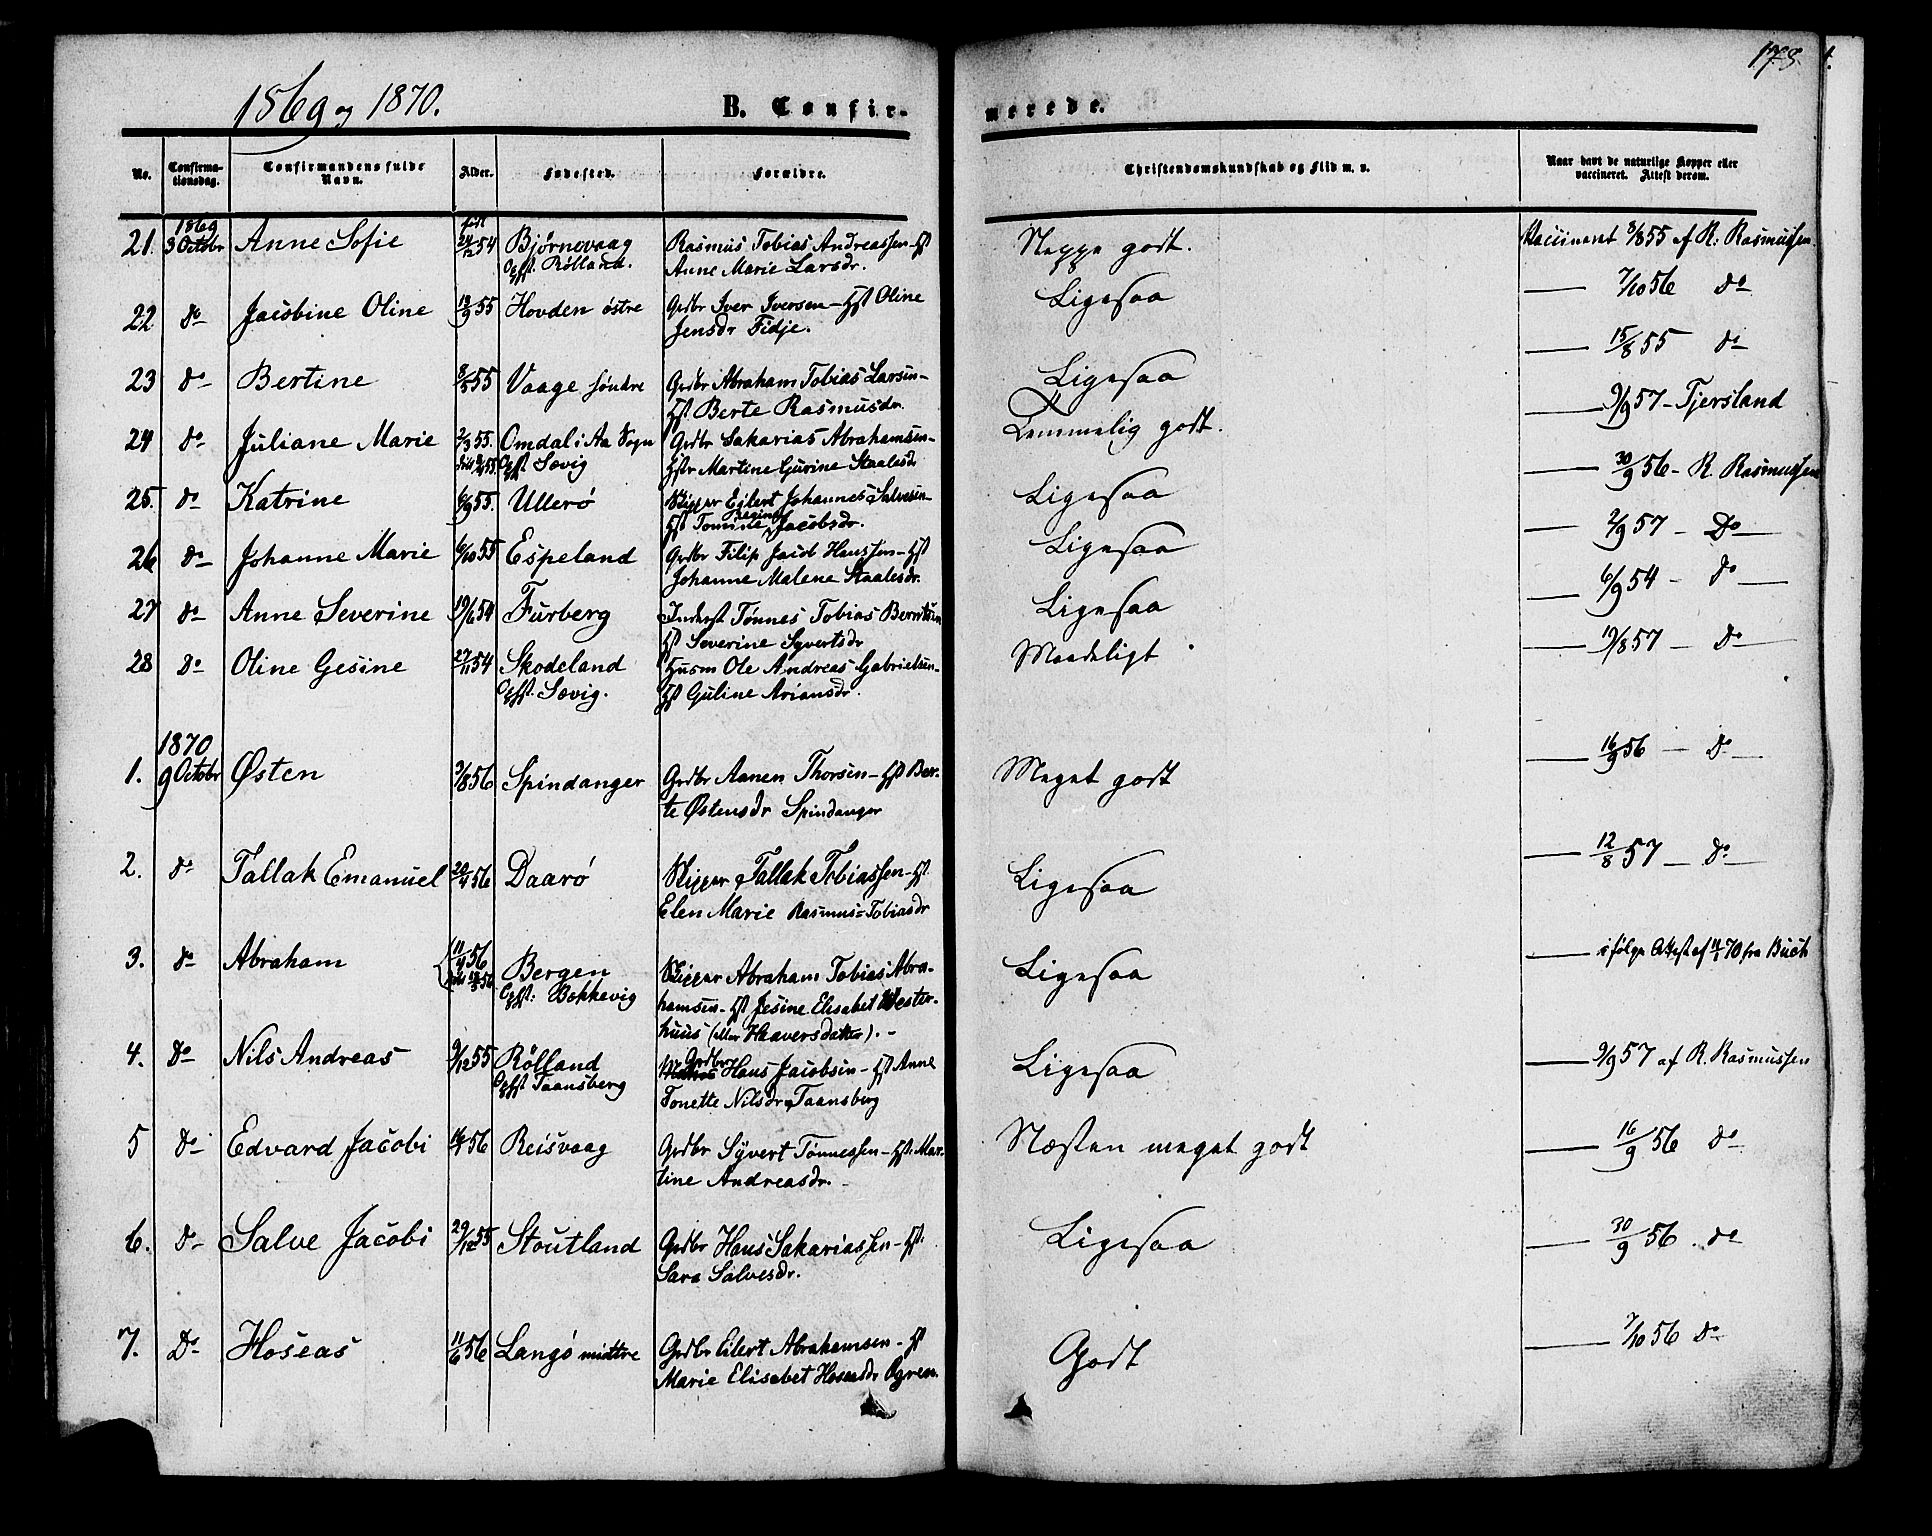 173.
1869 og 1870.
B. Confir-
merede.
No.
Confirma-
tionsdag.
Confirmandens fulde
Navn.
Alder.
Fødested.
Forældre.
Christendomskundskab og Flid m. v.
Naar havt de naturlige Kopper eller
vaccineret. Attest derom.
1869
21. 3 Octobr Anne Sofie født 24/12 54 Bjørnevaag
Opfst. Rølland.
Rasmus Tobias Andreassen - Hst
Anne Marie Larsdr.
Neppe godt.
Vaccineret 3/8 55 af R. Rasmussen
22 do Jacobine Oline 18/9 55 Hovden østre
Grdbr Iver Iversen - Hst Oline
Jensdr Fidje.
Ligesaa
7/10 56 do
23 do Bertine 3/5 55 Vaage søndre
Grdbr Abraham Tobias Larsen -
Hst. Berte Rasmusdr.
Ligesaa
15/8 55 do
24 do Juliane Marie 2/3 55. Omdal i Aa Sogn
Opfst Sævig
Grdbr Sakarias Abrahamsen -
Hstr Martine Gurine Staalesdr
Temmelig godt.
9/9 57 - Tjersland
25. do Katrine 6/9 55. Ullerø
Skipper Eilert Johannes Salvesen -
Hst Tomine Regine Jacobsdr.
Ligesaa
30/9 56 - R. Rasmussen
26 do Johanne Marie 6/10 55 Espeland
Grdbr Filip Jacob Hanssen - Hst
Johanne Malene Staalesdr.
Ligesaa
2/9 57 - Do
27 do Anne Severine 19/6 54 Furberg
Inderst Tønnes Tobias Berntsen
Hst Severine Syvertsdr
Ligesaa
6/9 54 - do
28 do Oline Gesine 27/11 54 Skodeland
Opfst. Sævig.
Husm Ole Andreas Gabrielsen -
Hst Guline Ariansdr.
Maadeligt
19/8 57 - do
1870
1. 9 Octobr Østen 3/8 56 Spindanger
Grdbr Aanen Thorsen - Hst Ber-
te Østensdr Spindanger
Meget godt
16/9 56 - do
2. do Tallak Emanuel 20/4 56 Daarø
Skipper Tallak Tobiassen - Hst.
Elen Marie Rasmus-Tobiasdr
Ligesaa
12/8 57 - do
3. do Abraham 11/4 56 Bergen
Opfst: Bokkevig
Skipper Abraham Tobias Abra-
hamsen - Hst Jesine Elisabet Wester-
huus (eller Haaversdatter). -
Ligesaa
ifølge Attest af 11/5 70 fra Buch
4. Do Nils Andreas 9/12 55 Rølland
Opfst Taansberg
Grdbr Hans Jacobsen - Hst Anne
Tonette Nilsdr Taansberg
Ligesaa
9/9 57 af R. Rasmussen
5 Do Edvard Jacobi 14/7 56 Reisvaag
Grdbr Syvert Tønnessen - Hst. Mar-
tine Andreasdr. -
Næsten meget godt
16/9 56 do
6. do Salve Jacobi 29/12 55 Stoutland
Grdbr Hans Sakariassen - Hst.
Sara Salvesdr.
Ligesaa
30/9 56. do
7. Do Hoseas 11/6 56 Langø midtre
Grdbr Eilert Abrahamsen - Hst
Marie Elisabet Hoseasdr Ogren.
Godt
7/10 56 do